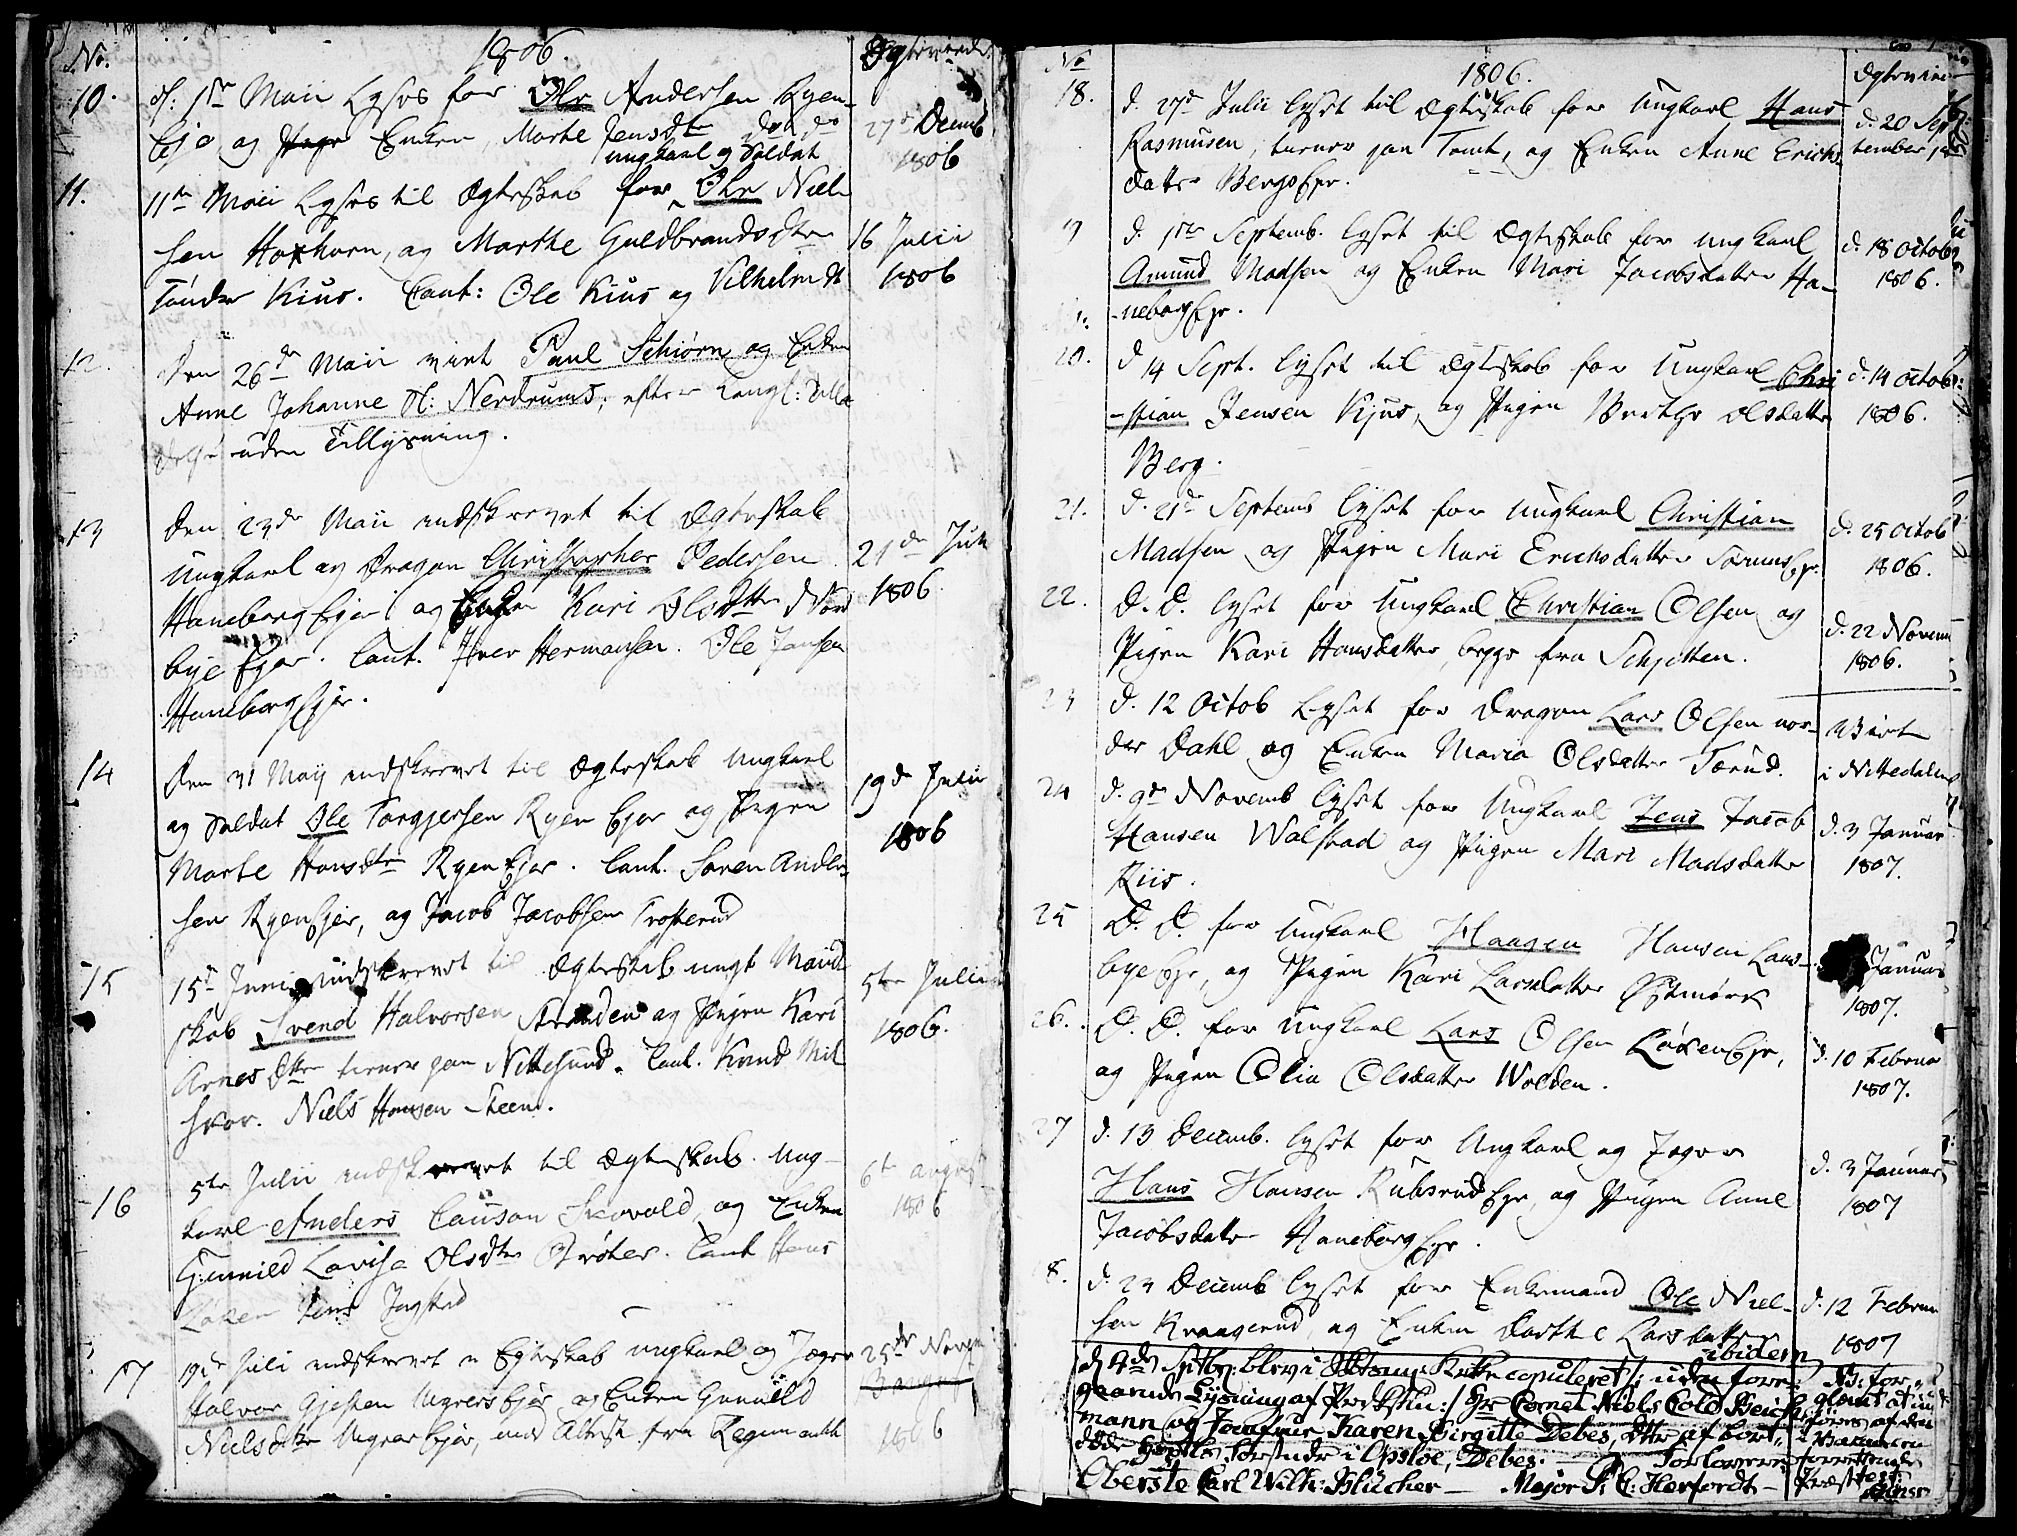 No. 1806.
10. d: 1ste Maii lyses for Ole Andersen Ryen-
bye og Enken, Marte Jensdtr
27de Decemb
1806
ungkarl og Soldat
11. 11te Maii lyses til Ægteskab for Ole Niel-
sen Haxhorn, og Marthe Guldbrandsdtr
Tønder Kius. Caut: Ole Kius og Vilhelm
16 Julii
1806
12. Den 26de Maii viet Paul Schiørn og Enken
Anne Johanne Sl: Nerdrums, efter Kongl: Tilla-
delse uden Tillysning.
13 Den 23de Maii indskrevet til Ægteskab
Ungkarl og Dragon Christopher Pedersen
Haneborg Ejer og Enken Kari Olsdtr Nord
bye Ejer. Caut. Iver Hermansen. Ole Jensen
Haneborg Ejer.
21de Juli
1806
14 Den 31 Maij indskrevet til Ægteskab Ungkarl
og Soldat Ole Torgjersen Ryen Ejer og Pigen
Marte Hansdtr Ryen Ejer. Caut. Søren Ander-
sen Ryen Ejer, og Jacob Jacobsen Trosterud
19de Julii
1806
15 15de Juni indskrevet til Ægteskab ungt Mand-
skab Svend Halvorsen Stranden og Pigen Kari
Arnesdtr tiener paa Nittesund. Caut. Knud Mit
skov. Niels Hansen Steen.
5te Julii
1806.
16 5te Julii indskrevet til Ægteskab. Ung-
karl Anders Clauson Skovold, og Enken
Gunnild Lovise Olsdtr Brøter. Caut Hans
Løken Jens Ingstad
6te august
1806
17 19de Juli indskrevet til Egteskab ungkarl og Jæger
Halvor Gjestsen Ungers Ejer og Enken Gunnild
Nielsdtr Ungers Ejer, med Attest fra Regimentet
25de Novem
1806
No 1806.
18. d. 27de Julii lyset til Ægteskab for Ungkarl Hans
Rasmusen, tiener paa Tomt, og Enken Anne Erichs
datter Bergs Ejer.
d. 20 Sep
tember
19 d. 1ste Septemb. lyset til Ægteskab for ungkarl
Amund Madsen og Enken Mari Jacobsdatter Ha-
-neborg Ejer.
d. 18 Octob
1806.
20. d 14 Sept. lyset til Ægteskab for Ungkarl Chri
-stian Jensen Kjus, og Pigen Berthe Olsdatter
Berg.
d. 14 Octob:
1806.
21. d. 21de Septemb lyset for Ungkarl Christian
Madsen og Pigen Mari Erichsdatter Sørums Ejer.
d. 25 Octob
1806.
22. D. D. lyset for Ungkarl Christian Olsen og
Pigen Kari Hansdatter, begge fra Schjetten.
d. 22 Novem
1806.
23 d. 12 Octob lyset for Dragon Lars Olsen nor-
dre Dahl og Enken Maria Olsdatter Tærud.
Viet
i Nittedalen
24 d. 9de Novemb lyset for Ungkarl Jens Jacob
Hansen Walstad og Pigen Mari Madsdatter
Riis.
d. 3 Januar
1807.
25 D. D. for Ungkarl Haagen Hansen Lans-
bye Ejer, og Pigen Kari Larsdatter Østmørk
Januar
1807.
26. D. D. for Ungkarl Lars Olsen Løken Ejer,
og Pigen Olia Olsdatter Wolden.
d. 10 Februar
1807.
27 d. 13 Decemb. lyset for Ungkarl og Jæger
Hans Hansen Rubsrud Ejer, og Pigen Anne
Jacobsdatter Haneborg Ejer.
d. 3 Januar
1807
8. d. 23 Decemb lyset for Enkemand Ole Niel-
sen Kraagerud, og Enken Dorthe Larsdatter
ibidem
d. 12 Februar
1807
d 4de Septbr: blev i Kirke copuleret /: uden forre-
gaaende Lysning af Prædikstol :/ Hr Cornet Niels Cold
mann og Jomfrue Karen Birgitte Debes, Dtr af bort-
døde i Opsloe, Debes. Forlovere
Oberste Carl Wilh: Blücher — Major P. C: Herfordt —
NB: for-
glemt at ind
føres af den